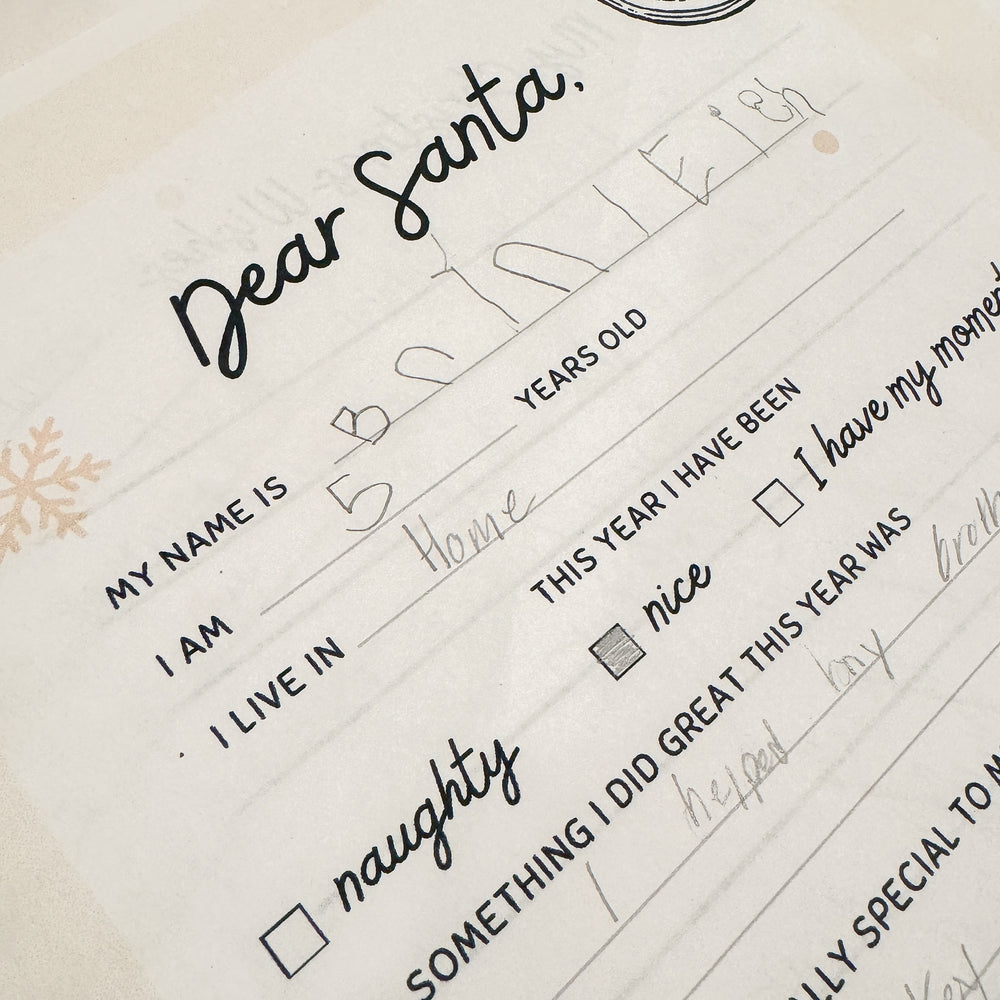 Dear Santa,
MY NAME IS
I AM 5 YEARS OLD
I LIVE IN Home
THIS YEAR I HAVE BEEN
naughty nice I have my moment
SOMETHING I DID GREAT THIS YEAR WAS
I helped my broth
ALLY SPECIAL TO